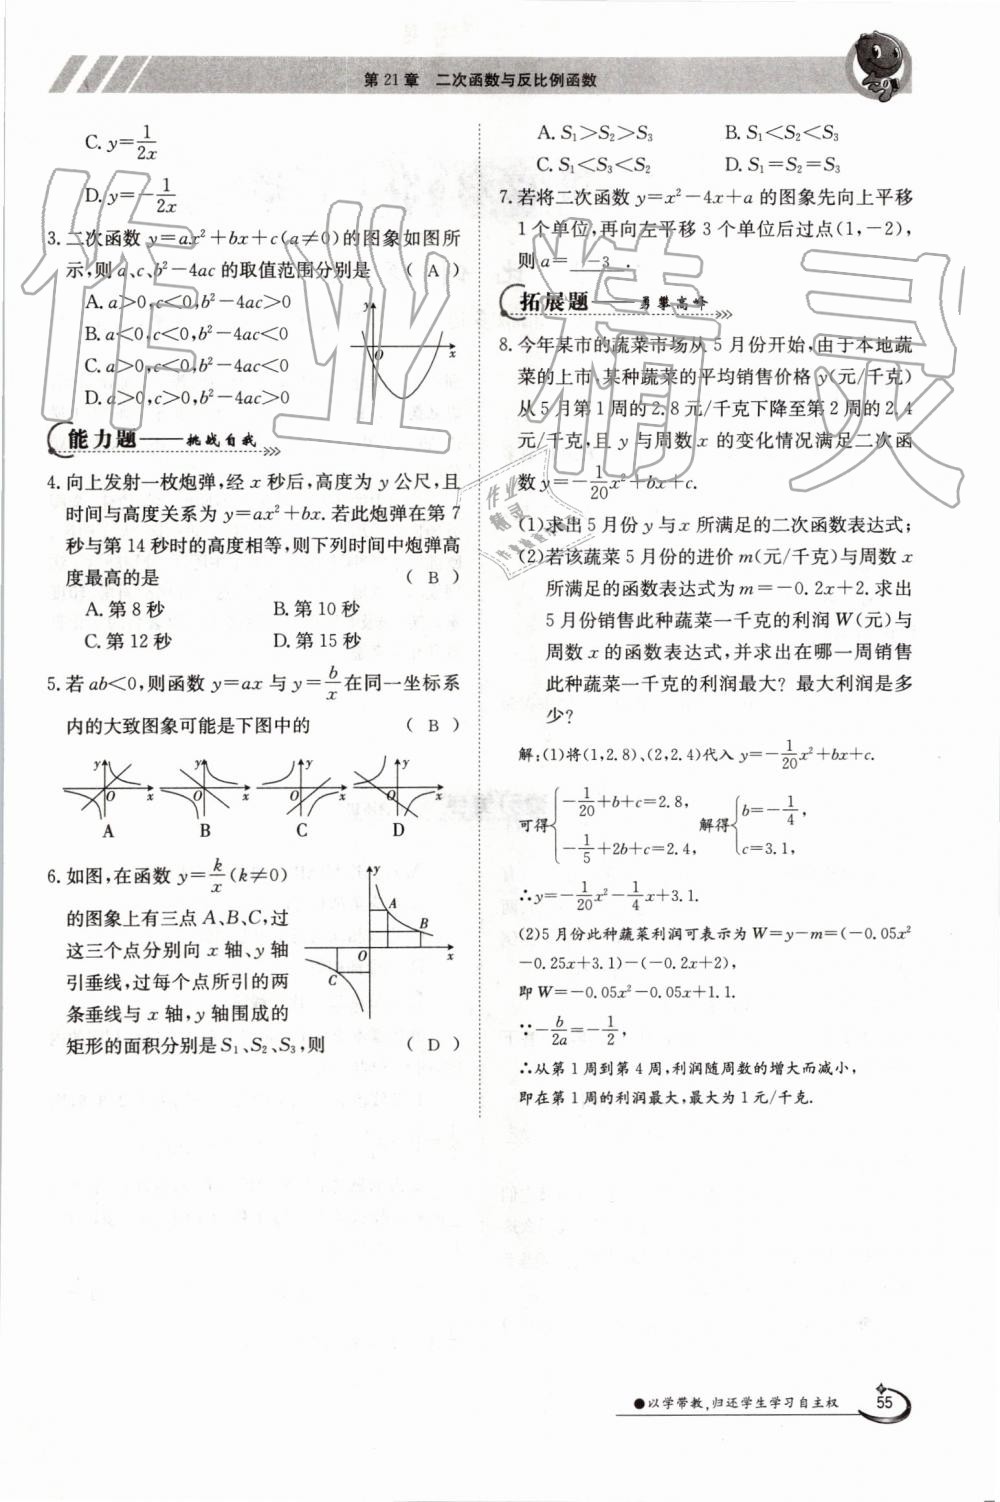 第21章 二次函数与反比例函数
C. y=1/(2x)
D. y=-1/(2x)
3. 二次函数 y=ax²+bx+c(a≠0)的图象如图所
示,则 a、c、b²-4ac 的取值范围分别是 ( A )
A. a>0,c<0,b²-4ac>0
B. a<0,c<0,b²-4ac<0
C. a>0,c<0,b²-4ac<0
D. a>0,c>0,b²-4ac>0
y
O
x
能力题——挑战自我
4. 向上发射一枚炮弹,经 x 秒后,高度为 y 公尺,且
时间与高度关系为 y=ax²+bx. 若此炮弹在第 7
秒与第 14 秒时的高度相等,则下列时间中炮弹高
度最高的是 ( B )
A. 第 8 秒 B. 第 10 秒
C. 第 12 秒 D. 第 15 秒
5. 若 ab<0,则函数 y=ax 与 y=b/x 在同一坐标系
内的大致图象可能是下图中的 ( B )
y y y y
O x O x O x O x
A B C D
6. 如图,在函数 y=k/x (k≠0)
的图象上有三点 A、B、C,过
这三个点分别向 x 轴、y 轴
引垂线,过每个点所引的两
条垂线与 x 轴,y 轴围成的
矩形的面积分别是 S₁、S₂、S₃,则 ( D )
y
A
B
O
x
C
A. S₁>S₂>S₃ B. S₁<S₂<S₃
C. S₁<S₃<S₂ D. S₁=S₂=S₃
7. 若将二次函数 y=x²-4x+a 的图象先向上平移
1 个单位,再向左平移 3 个单位后过点(1,-2),
则 a= -3 .
拓展题——勇攀高峰
8. 今年某市的蔬菜市场从 5 月份开始,由于本地蔬
菜的上市,某种蔬菜的平均销售价格 y(元/千克)
从 5 月第 1 周的 2.8 元/千克下降至第 2 周的 2.4
元/千克,且 y 与周数 x 的变化情况满足二次函
数 y=-1/20x²+bx+c.
(1)求出 5 月份 y 与 x 所满足的二次函数表达式;
(2)若该蔬菜 5 月份的进价 m(元/千克)与周数 x
所满足的函数表达式为 m=-0.2x+2. 求出
5 月份销售此种蔬菜一千克的利润 W(元)与
周数 x 的函数表达式,并求出在哪一周销售
此种蔬菜一千克的利润最大? 最大利润是多
少?
解:(1)将(1,2.8)、(2,2.4)代入 y=-1/20x²+bx+c.
可得{-1/20+b+c=2.8, -1/5+2b+c=2.4, 解得{b=-1/4, c=3.1,
∴y=-1/20x²-1/4x+3.1.
(2)5 月份此种蔬菜利润可表示为 W=y-m=(-0.05x²
-0.25x+3.1)-(-0.2x+2),
即 W=-0.05x²-0.05x+1.1.
∵-b/2a=-1/2,
∴从第 1 周到第 4 周,利润随周数的增大而减小,
即在第 1 周的利润最大,最大为 1 元/千克.
作业精灵
作业
精灵
●以学带教,归还学生学习自主权
55